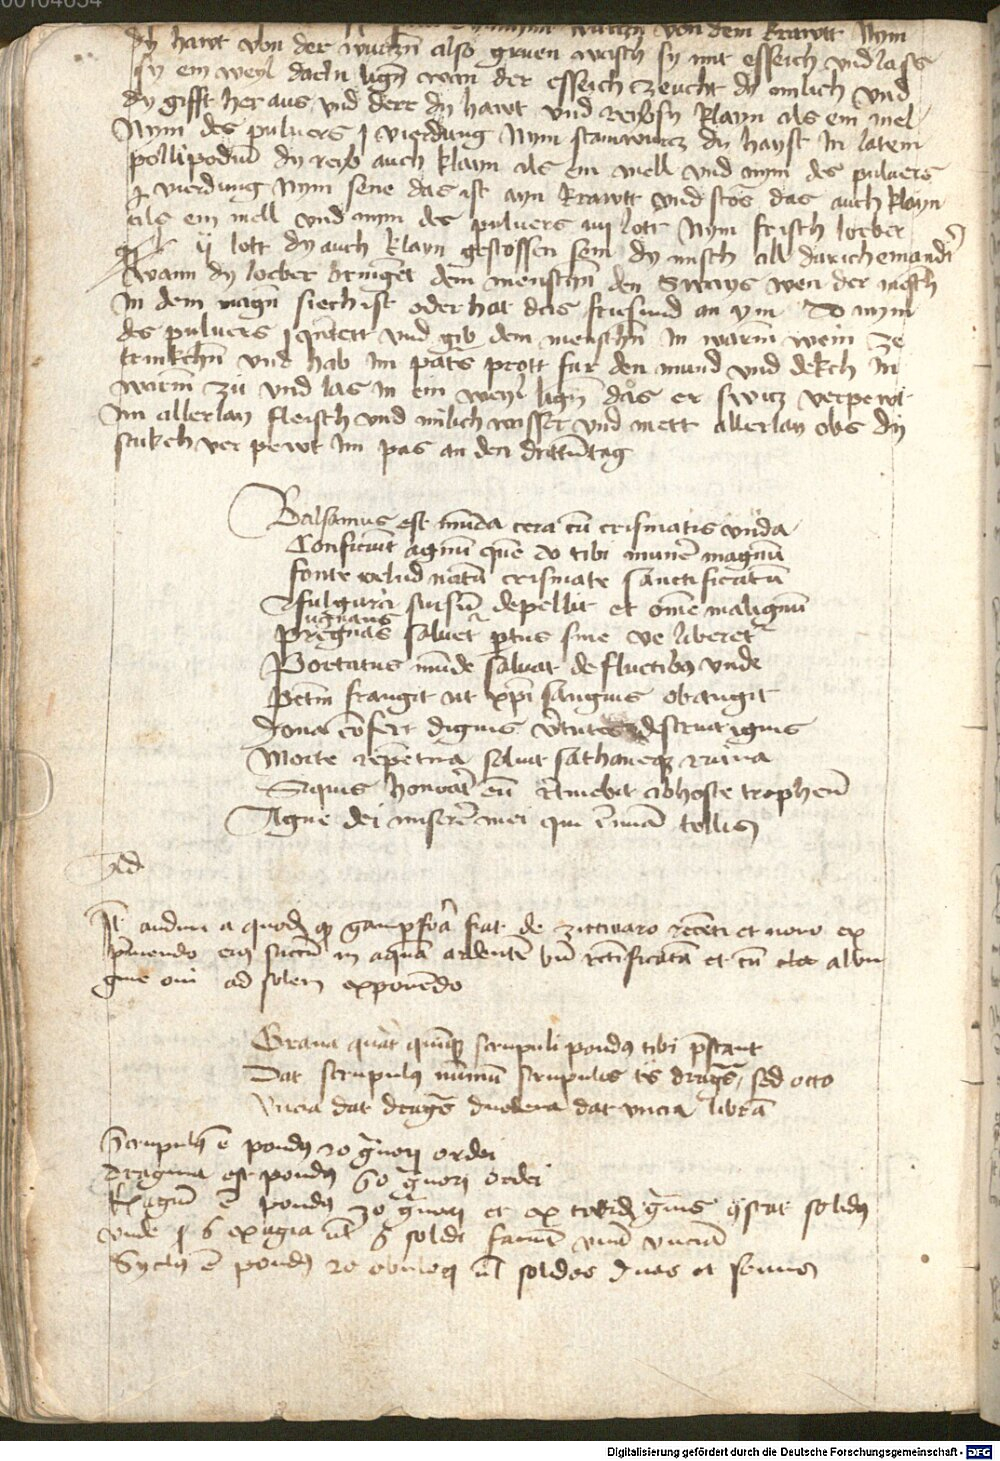 00104654
wurczn von dem krawtt Nym
dy hawt von der wurczn also gruen wasch sy mit esseich vnd lass
sy ein weyl darin lign wan der esseich zeucht dy milich vnd
dy gifft her aus vnd derr dy hawt vnd reibs sy klayn als ein mel
Nym des puluers j vierdung Nym stainwurcz dy hayst In latein
pollipodiu dy reyb auch klayn als ein mell vnd nym des puluers
j vierdung Nym sene das ist ayn krawtt vnd stos das auch klayn
als ein mell vnd nym des puluers iiij lott Nym frisch lorber
ij lott dy auch klayn gestossen sein dy misch all duricheinander
Wann dy lorber bringet dem menschn den Sways wen der mesch
In dem magn siech ist oder hat das an ym So nym
des puluers j qintett vnd gib dem menschn In warm wein ze
trinkchn vnd hab im pats prott fur den mund vnd dekch In
warm zu vnd las In ein weyl lign das er switz verpewt
im allerlay fleisch vnd milich wasser vnd mett allerlay obs dy
stukch ver pewt Im pas an den drittn tag
Balsamus est muda cera cu crismatis vnda
Conficiut agnu que do tibi munere magnu
fonte velud natu crismate sanctificatu
fulgura sursu depellit et ome malignu
pregnas saluetr ptus sine ve liberetr
Portatus mude saluat de fluctibus vnde
Petm frangit ut xpi sanguis et angit
dona cofert dignis vtutes destruit ignis
Morte repetina soluat sathaneq ruina
Siquis honorat eu retinebit ab hoste tropheu
Agne dei miserere mei qui crimina tollis
Ad
It audiui a quod q fiat de zittwaro recenti et nouo ex
pmendo eius succu in aqua ardente bn rectificata et cu albu
gine oui ad solem exponendo
Grana quat quinq scrupuli pondus tibi pstant
Dat scrupulus numu scrupulos ts dragma sed octo
Vncia dat dragmas duodena dat vncia libra
Scrupulus e pondus 20 granor ordei
Dragma est pondus 60 granor ordei
Exagiu e pondus granor et ex totid granis ostat solidus
vnde 6 exagia ul 6 solidi faciut vna vncia
Syclus e pondus 20 obuloq ul solidos duos et semis
Digitalisierung gefördert durch die Deutsche Forschungsgemeinschaft - DFG